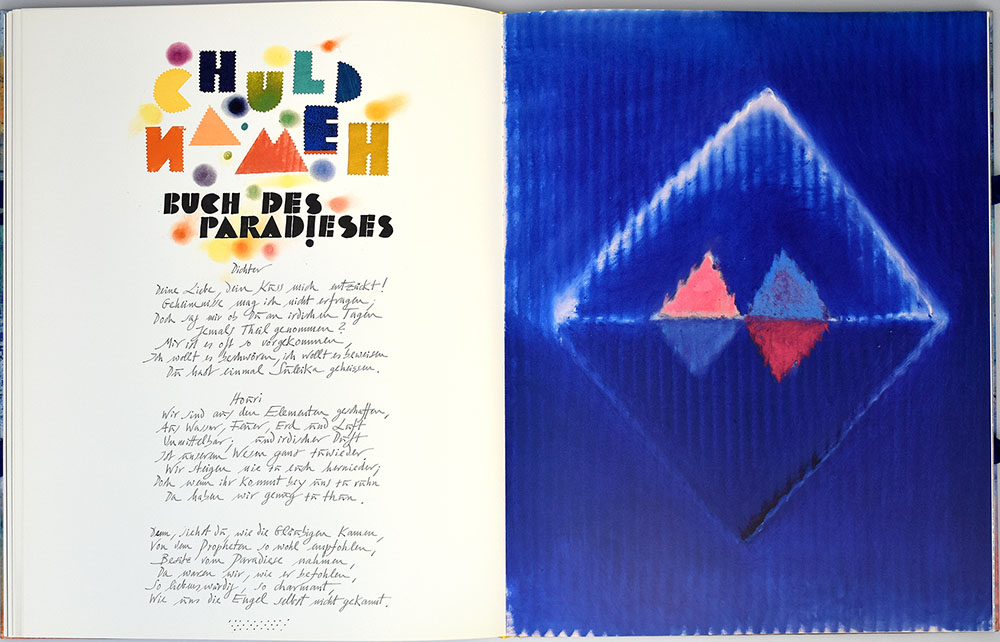 CHULD
NAMEH
BUCH DES
PARADIESES
Dichter
Deine Liebe, dein Kuss mich entzückt!
Geheimnisse mag ich nicht erfragen;
Doch sag mir ob Du an irdischen Tagen
Jemals Theil genommen?
Mir ist es oft so vorgekommen,
Ich wollt es beschwören, ich wollt es beweisen
Du hast einmal Suleika geheissen.
Houri
Wir sind aus den Elementen geschaffen,
Aus Wasser, Feuer, Erd und Luft
Unmittelbar; und irdischer Duft
Ist unserem Wesen ganz zuwieder.
Wir steigen nie zu euch hernieder;
Doch wenn ihr kommt bey uns zu ruhn
Da haben wir genug zu thun.
Denn, siehst du, wie die Gläubigen kamen,
Von dem Propheten so wohl empfohlen,
Besitz vom Paradiese nahmen,
Da waren wir, wie er befohlen,
So liebenswürdig, so charmant,
Wie uns die Engel selbst nicht gekannt.